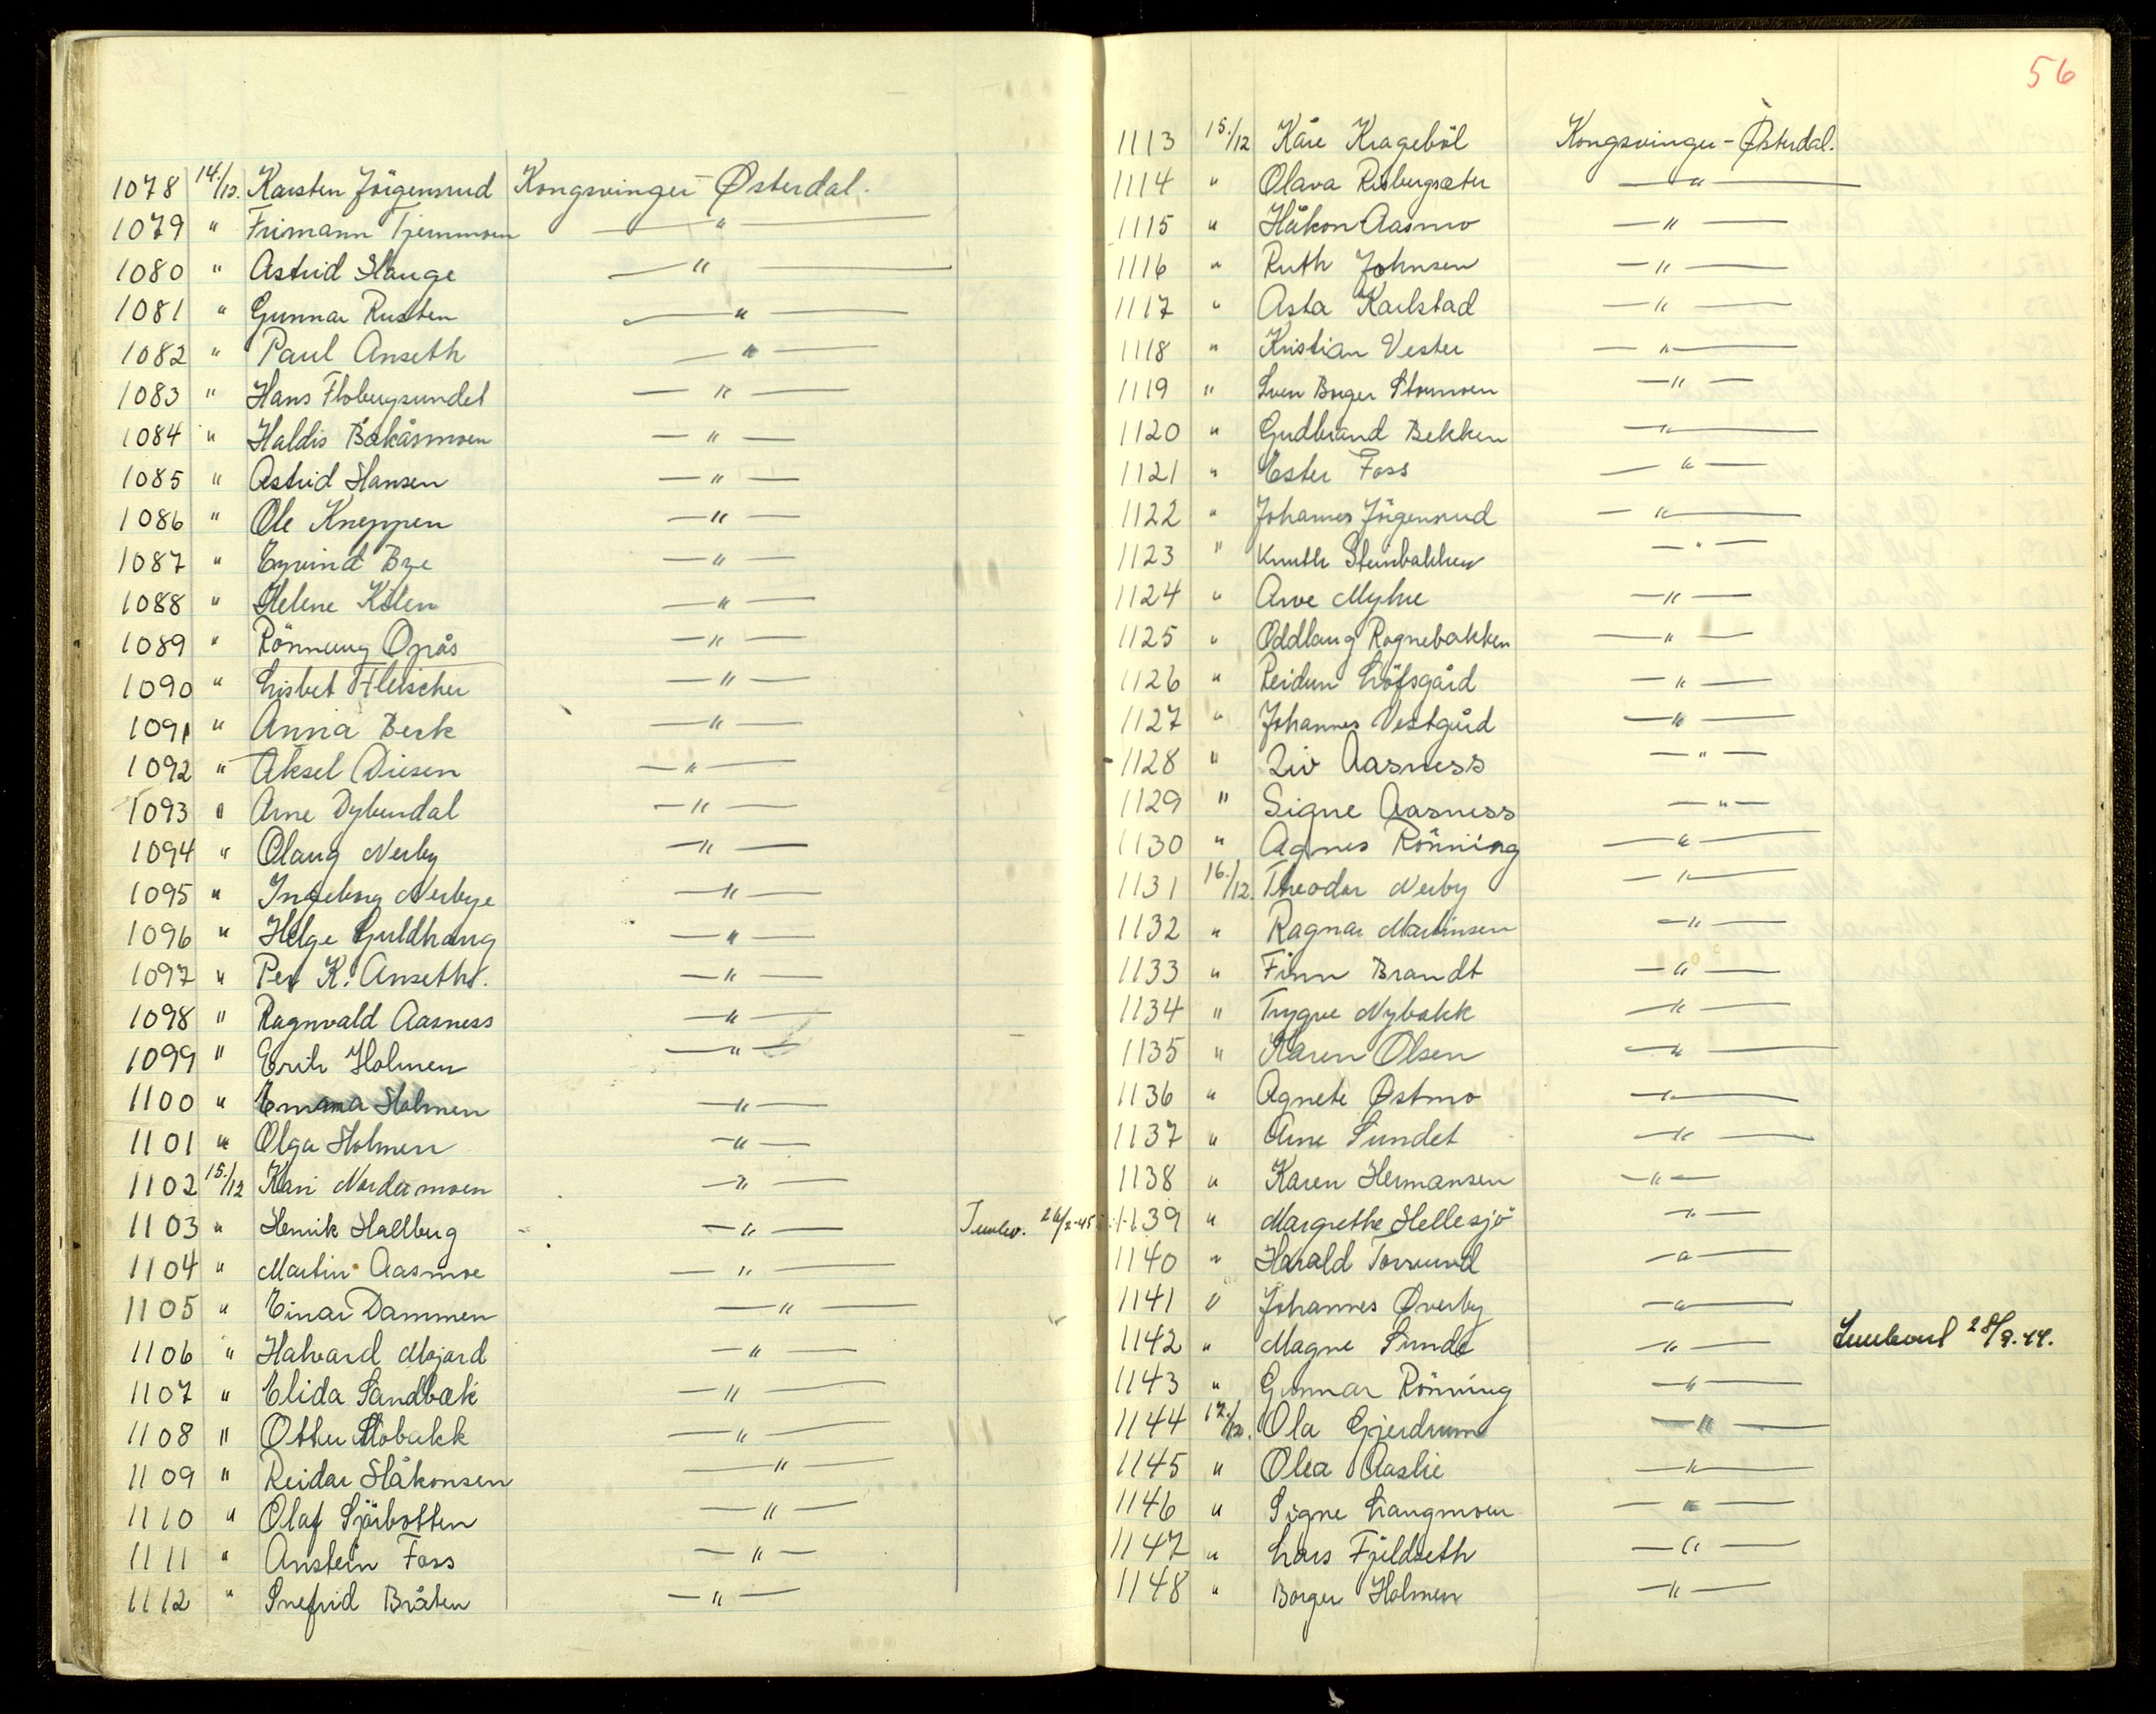 1078 14/12. Karsten Jörgensrud Kongsvinger - Østerdal.
1079 " Frimann Tjernmoen — " —
1080 " Astrid Hauge — " —
1081 " Gunnar Rusten — " —
1082 " Paul Anseth — " —
1083 " Hans Flobergsundet — " —
1084 " Haldis Bakåsmoen — " —
1085 " Astrid Hansen — " —
1086 " Ole Kneppen — " —
1087 " Eyvind Bye — " —
1088 " Helene Kölen — " —
1089 " Rönnaug Opås — " —
1090 " Lisbet Fleischer — " —
1091 " Anna Berk — " —
1092 " Aksel Diesen — " —
1093 " Arne Dybendal — " —
1094 " Olaug Nerby — " —
1095 " Ingeborg Nerbye — " —
1096 " Helge Guldhaug — " —
1097 " Per K. Anseth. — " —
1098 " Ragnvald Aasness — " —
1099 " Erik Holmen — " —
1100 " Emma Holmen — " —
1101 " Olga Holmen — " —
1102 15/12 Kari Nordermoen — " —
1103 " Henrik Hallberg — " — 26/2-45
1104 " Martin Aasmoe — " —
1105 " Einar Dammen — " —
1106 " Halvard Mojord — " —
1107 " Elida Sandbæk — " —
1108 " Otter Mobakk — " —
1109 " Reidar Håkonsen — " —
1110 " Olaf Sjöbotten — " —
1111 " Anstein Foss — " —
1112 " Snefrid Bråten — " —
56
1113 15./12 Kåre Krageböl Kongsvinger - Østerdal.
1114 " Olava Risbergsæter — " —
1115 " Håkon Aasmo — " —
1116 " Ruth Johnsen — " —
1117 " Asta Karlstad — " —
1118 " Kristian Vester — " —
1119 " Sven Borger Stormoen — " —
1120 " Gudbrand Bekken — " —
1121 " Ester Foss — " —
1122 " Johannes Jörgensrud — " —
1123 " Knuth Steinbakken — " —
1124 " Arve Myhre — " —
1125 " Oddlaug Rognebakken — " —
1126 " Reidun Löfsgård — " —
1127 " Johannes Vestgård — " —
1128 " Liv Aasness — " —
1129 " Signe Aasness — " —
1130 " Agnes Rönning — " —
1131 16./12. Theodor Nerby — " —
1132 " Ragnar Martinsen — " —
1133 " Finn Brandt — " —
1134 " Trygve Nybakk — " —
1135 " Karen Olsen — " —
1136 " Agnete Østmo — " —
1137 " Arne Sundet — " —
1138 " Karen Hermansen — " —
1139 " Margrethe Hellesjö — " —
1140 " Harald Torsrud — " —
1141 " Johannes Øverby — " —
1142 " Magne Sunde — " — 28/9.44.
1143 " Gunnar Rönning — " —
1144 17./12. Ola Gjerdrum — " —
1145 " Olea Aaslie — " —
1146 " Signe Langmoen — " —
1147 " Lars Fjeldseth — " —
1148 " Borger Holmen — " —